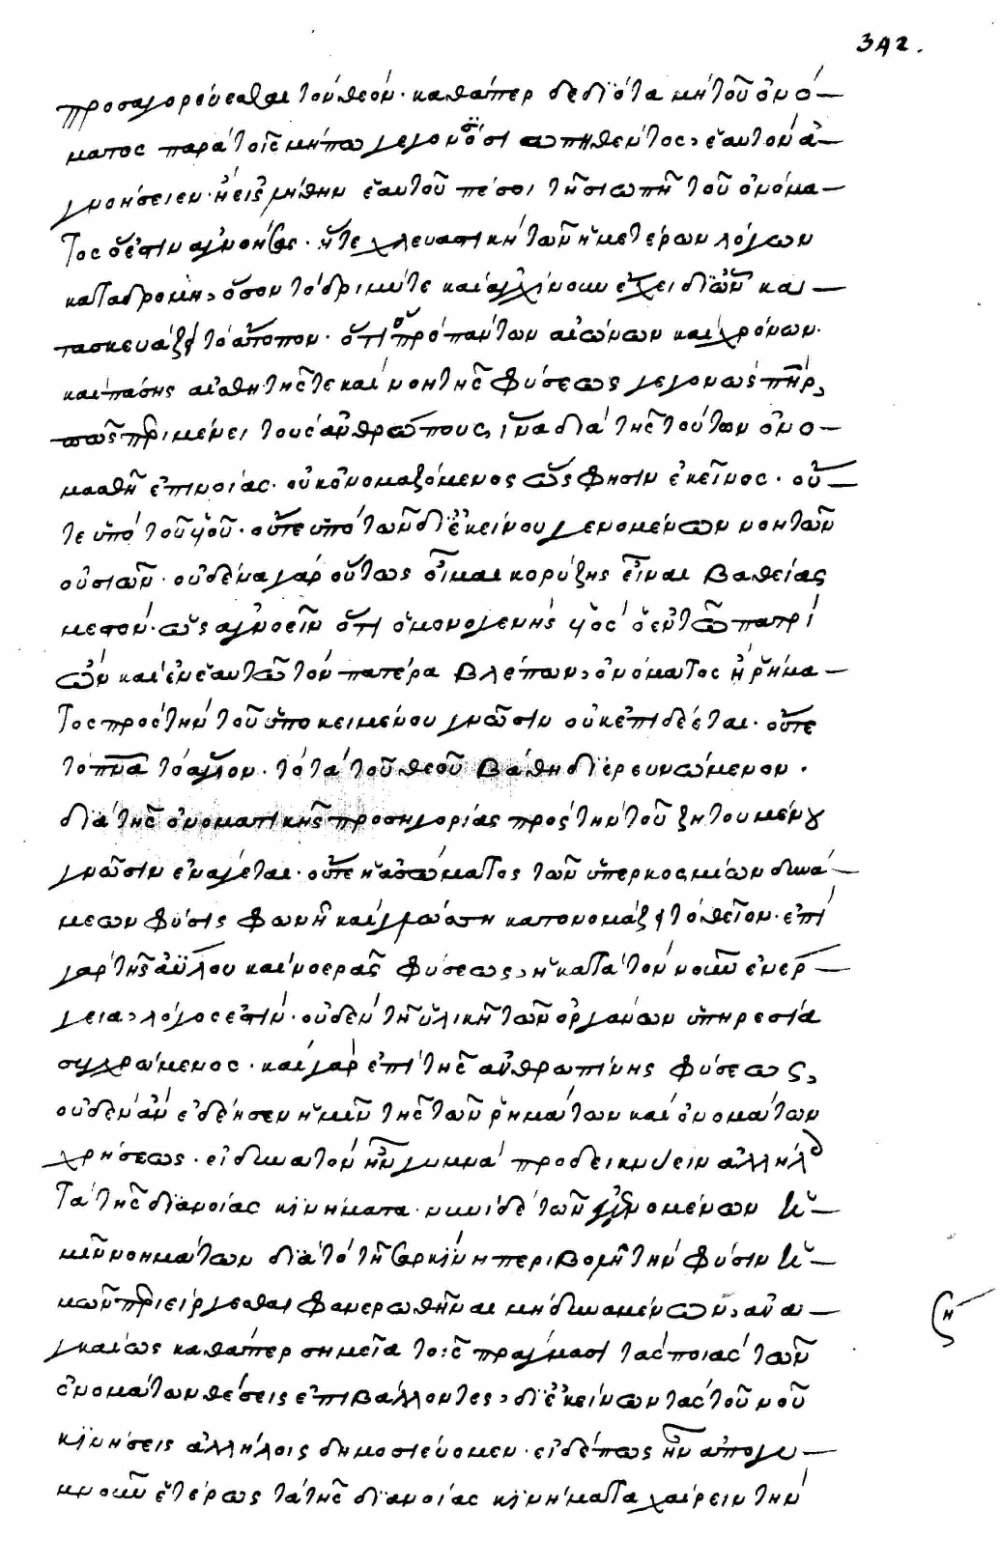 342.
προσαγορεύεσθαι τὸν θεόν· καθάπερ δεδιότα μὴ τοῦ ὀνό–
ματος παρὰ τοῖς μήπω γεγονόσι σιωπηθέντος, ἑαυτὸν ἀ–
γνοήσειεν· ἢ εἰς λήθην ἑαυτοῦ πέσοι τῇ σιωπῇ τοῦ ὀνόμα–
τος ὅ ἐστιν ἀγνοήσας· ἥ τε χλευαστικὴ τῶν ἡμετέρων λόγων
καταδρομή, ὅσον τὸ δριμύ τε καὶ ἀγχίνουν ἔχει δι' ὧν κα–
τασκευάζει τὸ ἄτοπον· ὅτι ὁ πρὸ πάντων αἰώνων καὶ χρόνων·
καὶ πάσης αἰσθητῆς τε καὶ νοητῆς φύσεως γεγονὼς πατήρ,
πῶς περιμένει τοὺς ἀνθρώπους, ἵνα διὰ τῆς τούτων ὀνο–
μασθῇ ἐπινοίας· οὐκ ὀνομαζόμενος ὥς φησιν ἐκεῖνος· οὔ–
τε ὑπὸ τοῦ υἱοῦ· οὔτε ὑπὸ τῶν δι' ἐκείνου γενομένων νοητῶν
οὐσιῶν· οὐδένα γὰρ οὕτως οἶμαι κορύζης εἶναι βαθείας
μεστόν· ὡς ἀγνοεῖν ὅτι ὁ μονογενὴς υἱὸς ὁ ἐν τῷ πατρὶ
ὢν καὶ ἐν ἑαυτῷ τὸν πατέρα βλέπων, ὀνόματος ἢ ῥήμα–
τος πρὸς τὴν τοῦ ὑποκειμένου γνῶσιν οὐκ ἐπιδέεται· οὔτε
τὸ πνα τὸ ἅγιον· τὸ τὰ τοῦ θεοῦ βάθη διερευνώμενον·
διὰ τῆς ὀνοματικῆς προσηγορίας πρὸς τὴν τοῦ ζητουμένου
γνῶσιν ἐνάγεται· οὔτε ἡ ἀσώματος τῶν ὑπερκοσμίων δυνά–
μεων φύσις φωνῇ καὶ γλώσσῃ κατονομάζει τὸ θεῖον· ἐπὶ
γὰρ τῆς ἀΰλου καὶ νοερᾶς φύσεως, ἡ κατὰ τὸν νοῦν ἐνέρ–
γεια, λόγος ἐστίν· οὐδὲν τῇ ὑλικῇ τῶν ὀργάνων ὑπηρεσίᾳ
συγχρώμενος· καὶ γὰρ ἐπὶ τῆς ἀνθρωπίνης φύσεως,
οὐδὲν ἂν ἐδέησεν ἡμῖν τῆς τῶν ῥημάτων καὶ ὀνομάτων
χρήσεως· εἰ δυνατὸν ἦν γυμνὰ προδεικνύειν ἀλλήλοις
τὰ τῆς διανοίας κινήματα· νυνὶ δὲ τῶν ἐγγινομένων ἡ–
μῖν νοημάτων διὰ τὸ τῇ σαρκίνῃ περιβολῇ τὴν φύσιν ἡ–
μῶν περιείργεσθαι φανερωθῆναι μὴ δυναμένων, ἀνα–
γκαίως καθάπερ σημεῖα τοῖς πράγμασι τὰς ποιὰς τῶν
ὀνομάτων θέσεις ἐπιβάλλοντες, δι' ἐκείνων τὰς τοῦ νοῦ
κινήσεις ἀλλήλοις δημοσιεύομεν· εἰ δέ πως ἦν ἀπογυ–
μνοῦν ἑτέρως τὰ τῆς διανοίας κινήματα χαίρειν τὴν